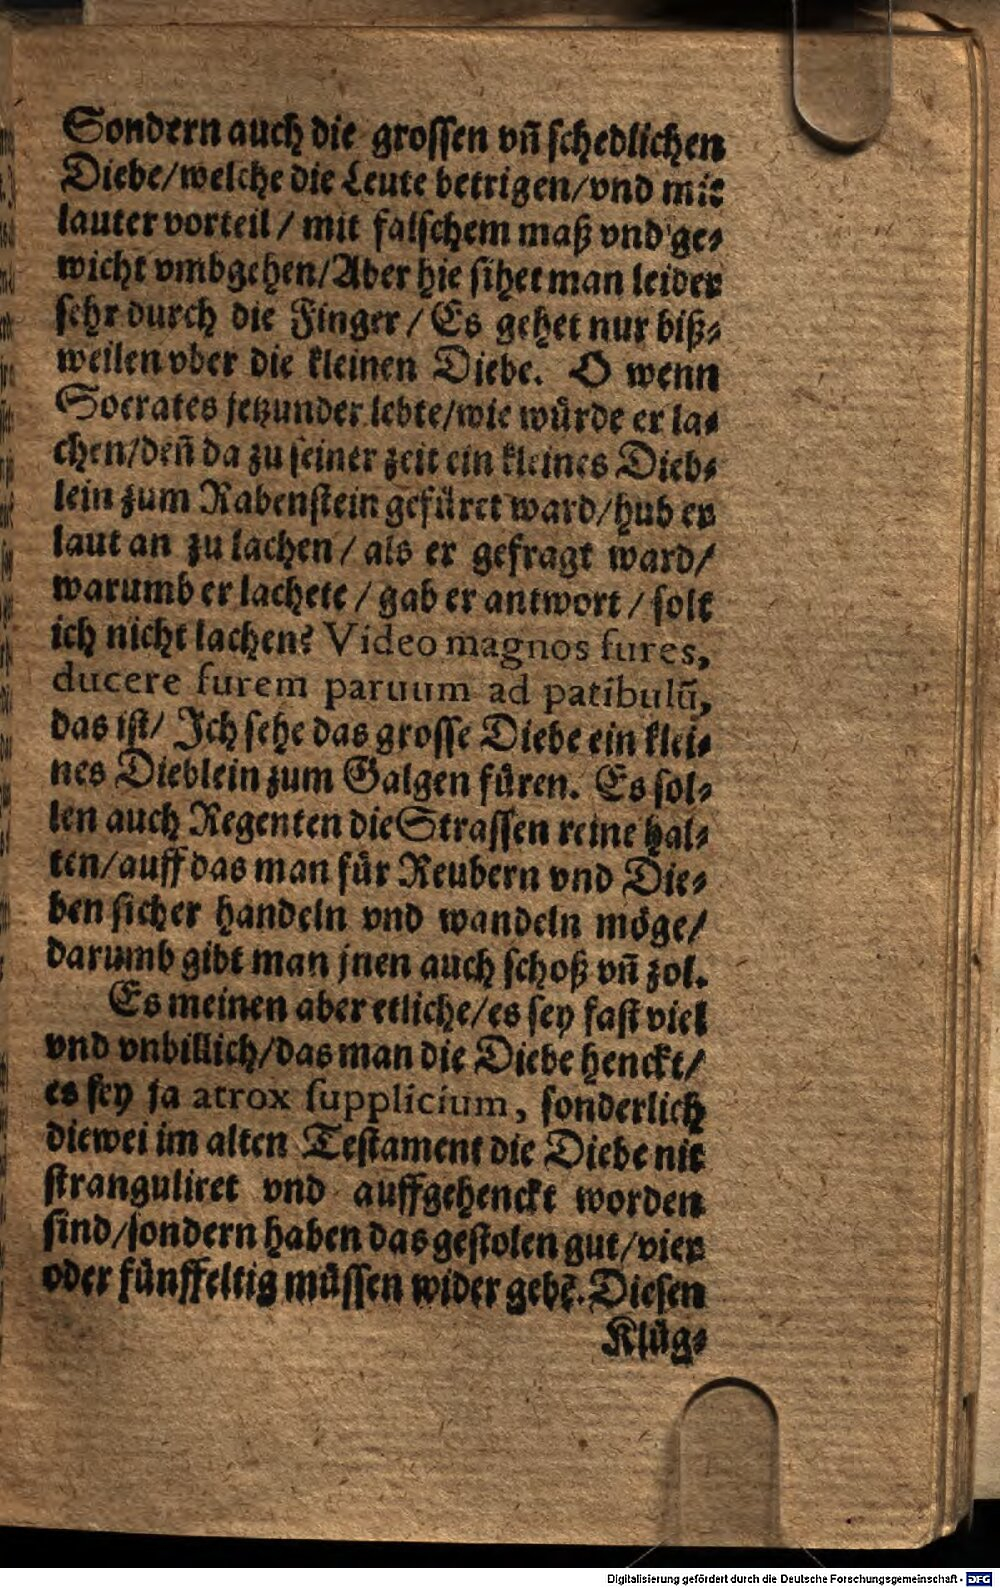 Sondern auch die grossen vñ schedlichen
Diebe/welche die Leute betrigen/vnd mit
lauter vorteil / mit falschem maß vnd ge⸗
wicht vmbgehen/Aber hie sihet man leider
sehr durch die Finger / Es gehet nur biß⸗
weilen vber die kleinen Diebe. O wenn
Socrates jetzunder lebte/wie wuͤrde er la⸗
chen/deñ da zu seiner zeit ein kleines Dieb⸗
lein zum Rabenstein gefuͤret ward/hub er
laut an zu lachen / als er gefragt ward/
warumb er lachete / gab er antwort / solt
ich nicht lachen? Video magnos fures,
ducere furem paruum ad patibulū,
das ist/ Ich sehe das grosse Diebe ein klei⸗
nes Dieblein zum Galgen fuͤren. Es sol⸗
len auch Regenten die Strassen reine hal⸗
ten/auff das man fuͤr Reubern vnd Die⸗
ben sicher handeln vnd wandeln moͤge/
darumb gibt man jnen auch schoß vñ zol.
Es meinen aber etliche/es sey fast viel
vnd vnbillich/das man die Diebe henckt/
es sey ja atrox supplicium, sonderlich
diewei im alten Testament die Diebe nit
stranguliret vnd auffgehenckt worden
sind/sondern haben das gestolen gut/vier
oder fuͤnffeltig muͤssen wider gebē. Diesen
Kluͤg⸗
Digitalisierung gefördert durch die Deutsche Forschungsgemeinschaft - DFG